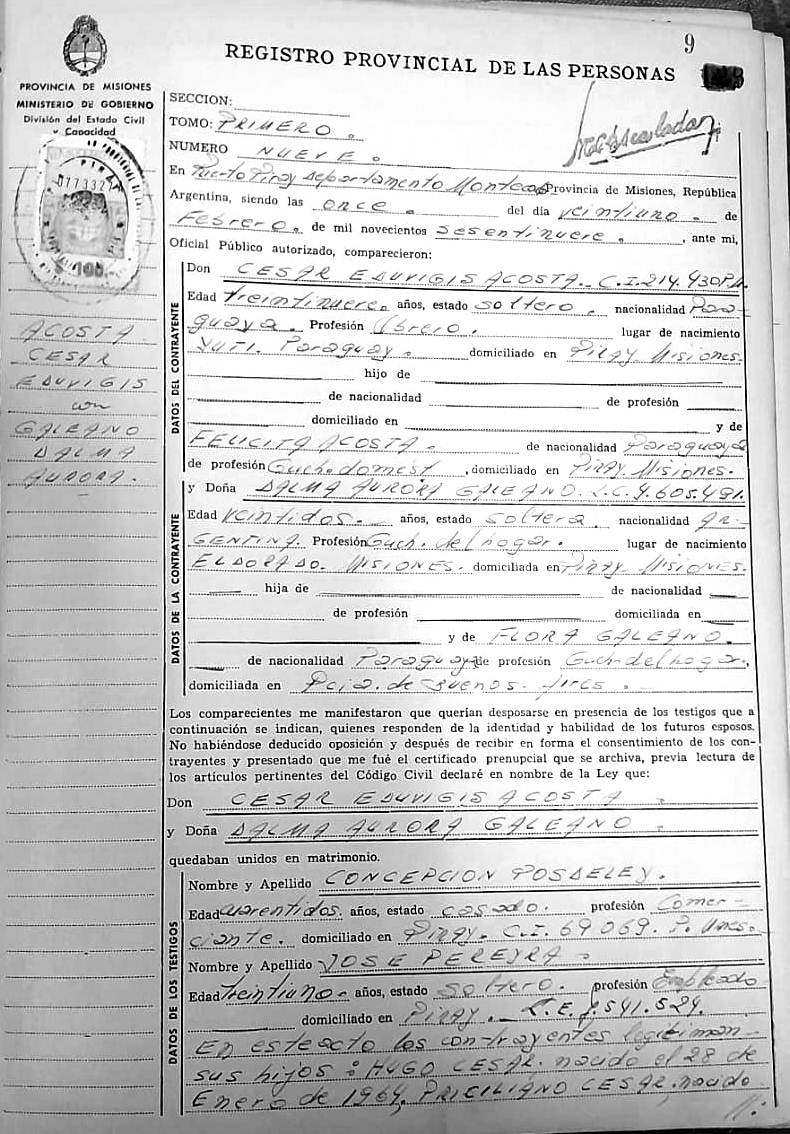 9
REGISTRO PROVINCIAL DE LAS PERSONAS
PROVINCIA DE MISIONES
MINISTERIO DE GOBIERNO
División del Estado Civil
y Capacidad
0773327
$ 100
ACOSTA
CESAR
EDUVIGIS
con
GALEANO
DALMA
AURORA.
SECCION:
TOMO: PRIMERO.
NUMERO NUEVE.
En Puerto Piray Departamento Montec Provincia de Misiones, República
Argentina, siendo las once. del día veintiuno. de
Febrero. de mil novecientos sesentinueve. , ante mi,
Oficial Público autorizado, comparecieron:
DATOS DEL CONTRAYENTE
Don CESAR EDUVIGIS ACOSTA. C.I. 214.430
Edad treintinueve. años, estado soltero. nacionalidad Para-
guaya. Profesión Obrero. lugar de nacimiento
YUTI. Paraguay. domiciliado en Piray Misiones.
hijo de
de nacionalidad de profesión
domiciliado en y de
FELICITA ACOSTA. de nacionalidad Paraguaya
de profesión Queh. domest , domiciliado en Piray Misiones.
y Doña DALMA AURORA GALEANO. L.C. 4.605.491.
DATOS DE LA CONTRAYENTE
Edad veintidos. años, estado soltera. nacionalidad AR-
GENTINA. Profesión Queh. del hogar. lugar de nacimiento
ELDORADO. MISIONES. domiciliada en Piray Misiones.
hija de de nacionalidad
de profesión domiciliada en
y de FLORA GALEANO.
de nacionalidad Paraguaya de profesión Queh. del hogar.
domiciliada en Pcia. de Buenos Aires.
Los comparecientes me manifestaron que querían desposarse en presencia de los testigos que a
continuación se indican, quienes responden de la identidad y habilidad de los futuros esposos.
No habiéndose deducido oposición y después de recibir en forma el consentimiento de los con-
trayentes y presentado que me fué el certificado prenupcial que se archiva, previa lectura de
los artículos pertinentes del Código Civil declaré en nombre de la Ley que:
Don CESAR EDUVIGIS ACOSTA.
y Doña DALMA AURORA GALEANO.
quedaban unidos en matrimonio.
DATOS DE LOS TESTIGOS
Nombre y Apellido CONCEPCION POSDELEY.
Edad cuarentidos. años, estado casado. profesión Comer-
ciante. domiciliado en Piray. C.I. 69069. P. Mnes.
Nombre y Apellido JOSE PEREYRA.
Edad treintiuno. años, estado soltero. profesión Empleado
domiciliado en Piray. L.E. 7.541.524.
En este acto los contrayentes legitiman
sus hijos: HUGO CESAR. nacido el 28 de
Enero de 1964, PRICILIANO CESAR. nacido
//.